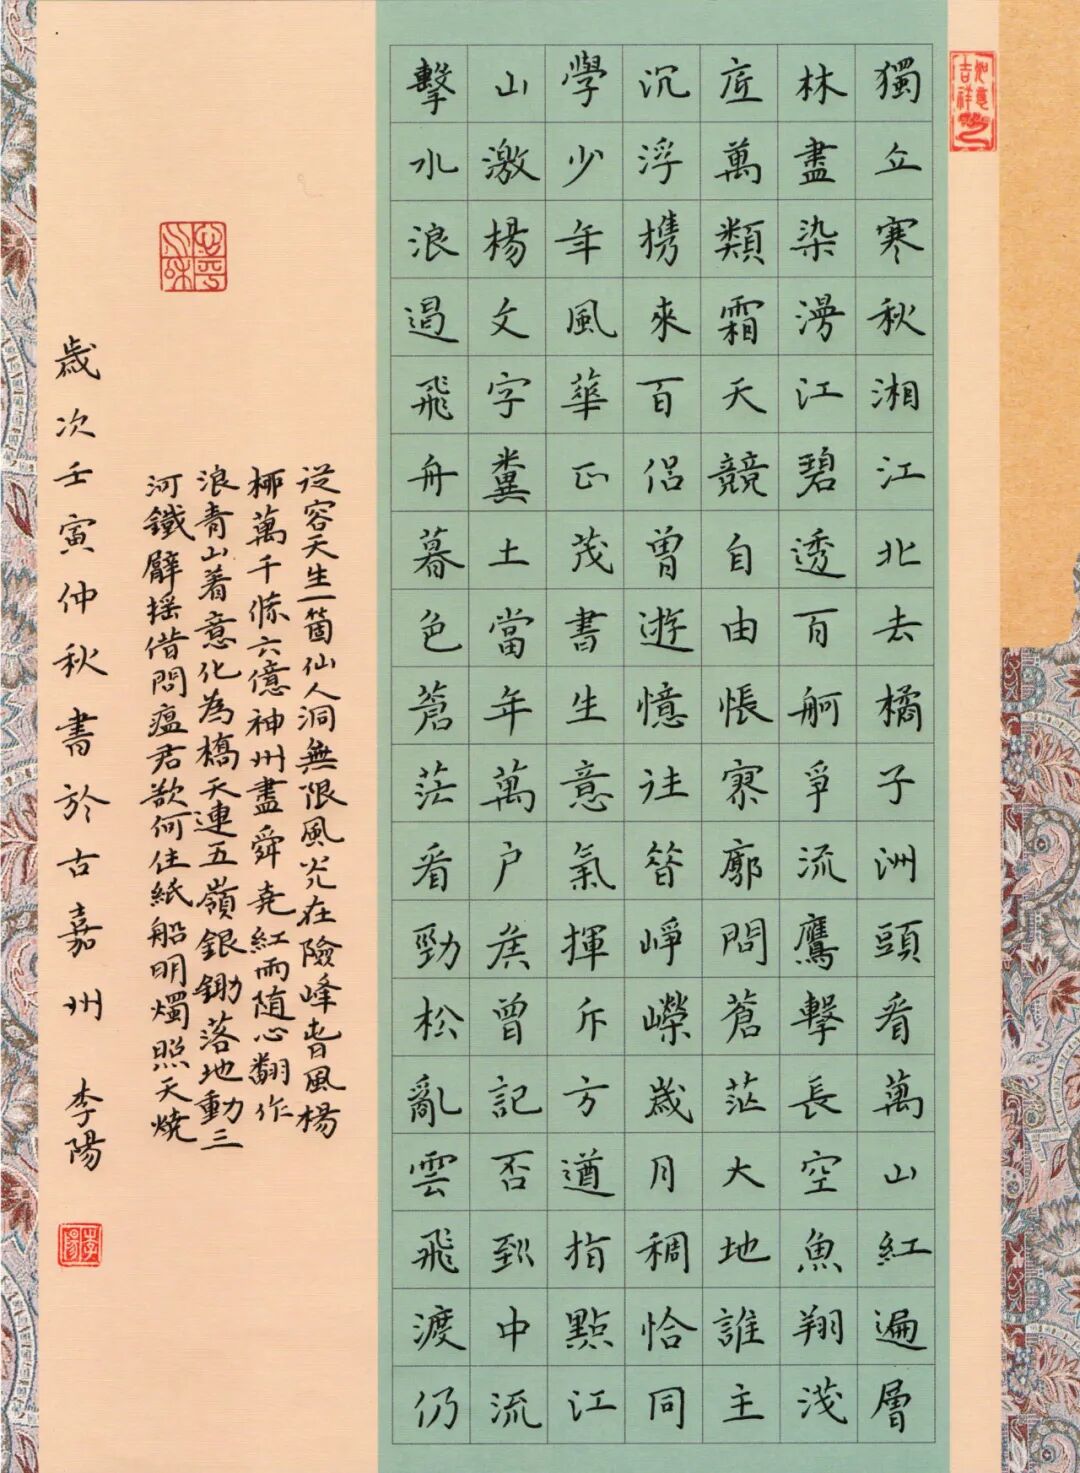 獨立寒秋湘江北去橘子洲頭看萬山紅遍層
林盡染漫江碧透百舸爭流鷹擊長空魚翔淺
底萬類霜天競自由悵寥廓問蒼茫大地誰主
沉浮携來百侶曾遊憶往昔崢嶸歲月稠恰同
學少年風華正茂書生意氣揮斥方遒指點江
山激楊文字糞土當年萬户侯曾記否到中流
擊水浪遏飛舟暮色蒼茫看勁松亂雲飛渡仍
從容天生一箇仙人洞無限風光在險峰春風楊
柳萬千條六億神州盡舜堯紅雨隨心翻作
浪青山着意化為橋天連五嶺銀鋤落地動三
河鐵臂摇借問瘟君欲何往紙船明燭照天燒
歲次壬寅仲秋書於古嘉州 李陽
如意吉祥
李陽